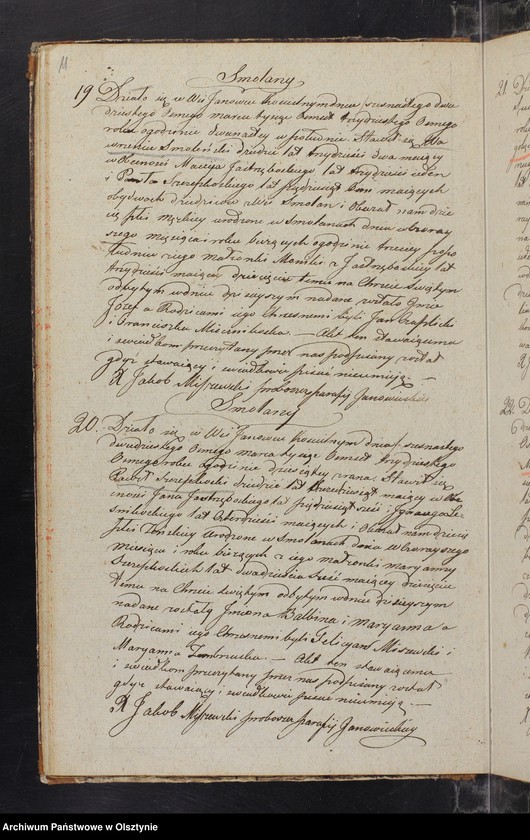 11
Smolany
19 Działo się w Wsi Janowie Kościelnym dnia szesnastego dwu
dziestego Osmego marca tysiąc Osmset trzydziestego Osmego
roku o godzinie dwunastej w południe. Stawił się Wa
wrzeniec Smoleński dziedzic lat trzydzieści dwa maiący
w Obecności Macieja Jastrzębskiego lat trzydzieści ieden
i Pawła Szczepkowskiego lat pięćdziesiąt maiących
obydwóch dziedziców z Wsi Smolan i Okazał nam dzie
cię płci męzkiey urodzone w Smolanach dnia wczoray
szego miesiąca i roku bieżących o godzinie trzeciey popo
łudniu z iego małżonki Monĩki z Jastrzębskich lat
trzydzieści maiącey dziecięciu temu na Chrzcie świętym
odbytym w dniu dzisieyszym nadane zostało Imie
Józef a Rodzicami iego Chrzesnemi byli Jan Czaplicki
i Franciszka Mieczni­koska. — Akt ten stawaiącemu
i świadkom przeczytany przez nas podpisany został
gdyż stawaiący i świadkowie pisać nieumieią. —
X Jakob Myszewski proboszcz parafij Janowieckiey
Smolany
20. Działo się w Wsi Janowie Kościelnym dnia szesnastego
dwudziestego Osmego marca tysiąc Osmset trzydziestego
Osmego roku o godzinie dziesiątey zrana. Stawił się
Szczepkoski dziedzic lat maiący w Obe
cności Jana Jastrzębskiego lat trzydzieści sześć i Ignacego
lat Czterdzieści maiących i Okazał nam dziecię
płci Żeńskiey urodzone w Smolanach dnia wczorayszego
miesiąca i roku bieżących z iego małżonki Maryanny
Szczepkoskich lat dwadzieścia sześć maiącey dziecięciu
temu na Chrzcie świętym odbytym w dniu dzisieyszym
nadane zostały Imiona Balbina i Maryanna a
Rodzicami iego Chrzesnemi byli Felicyan Mi­szewski i
Maryanna — Akt ten stawaiącemu
i świadkom przeczytany przez nas podpisany został
gdyż stawaiący i świadkowie pisać nieumieią. —
X Jakob Myszewski proboszcz parafij Janowieckiey
21.
22.
Archiwum Państwowe w Olsztynie